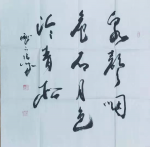 泉聲咽
危石月色
冷青松